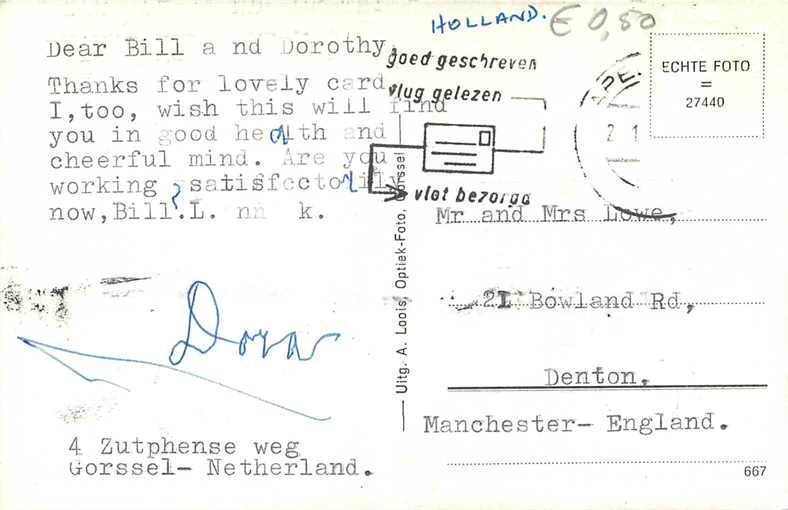 HOLLAND. € 0,50
Dear Bill a nd Dorothy,
Thanks for lovely card.
I,too, wish this will find
you in good health and
cheerful mind. Are you
working satisfoctorily
now,Bill?.L. k.
Dora
4 Zutphense weg
Gorssel- Netherland.
goed geschreven
vlug gelezen
vlot bezorgd
Uitg. A. Loois, Optiek-Foto, Gorssel
ECHTE FOTO
=
27440
21
Mr and Mrs Lowe,
21 Bowland Rd,
Denton.
Manchester- England.
667